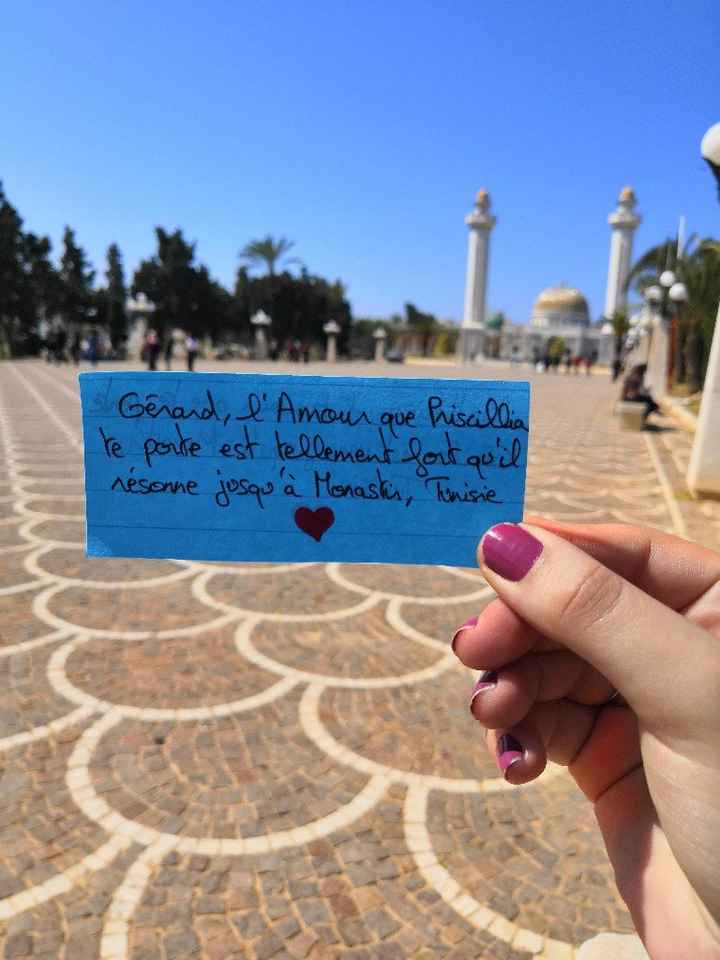 Gérard, l'Amour que Priscillia
te porte est tellement fort qu'il
résonne jusqu'à Monastir, Tunisie